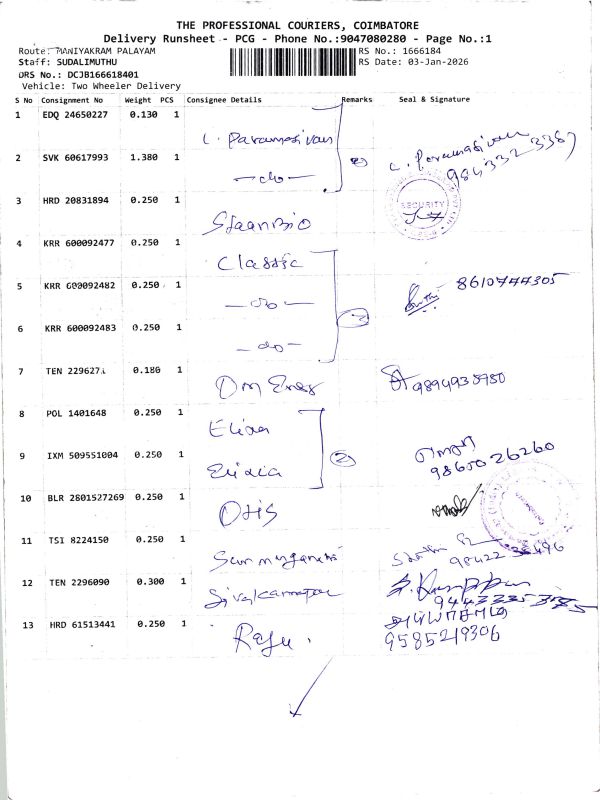 THE PROFESSIONAL COURIERS, COIMBATORE
Delivery Runsheet - PCG - Phone No.:9047080280 - Page No.:1
Route: MANIYAKRAM PALAYAM
RS No.: 1666184
Staff: SUDALIMUTHU
RS Date: 03-Jan-2026
DRS No.: DCJB166618401
Vehicle: Two Wheeler Delivery
S No Consignment No Weight PCS Consignee Details Remarks Seal & Signature
1 EDQ 24650227 0.130 1 C. Paramasivan
2 SVK 60617993 1.380 1 -do- 2 C. Paramasivan
984332 3387
3 HRD 20831894 0.250 1 StaanBio SECURITY
4 KRR 600092477 0.250 1 Classic
5 KRR 600092482 0.250 1 -do- 8610744305
6 KRR 600092483 0.250 1 -do-
7 TEN 2296271 0.180 1 9894935950
8 POL 1401648 0.250 1
9 IXM 509551004 0.250 1 2
9865026260
10 BLR 2801527269 0.250 1 Otis
11 TSI 8224150 0.250 1
12 TEN 2296090 0.300 1
13 HRD 61513441 0.250 1 Raju.
9585219306